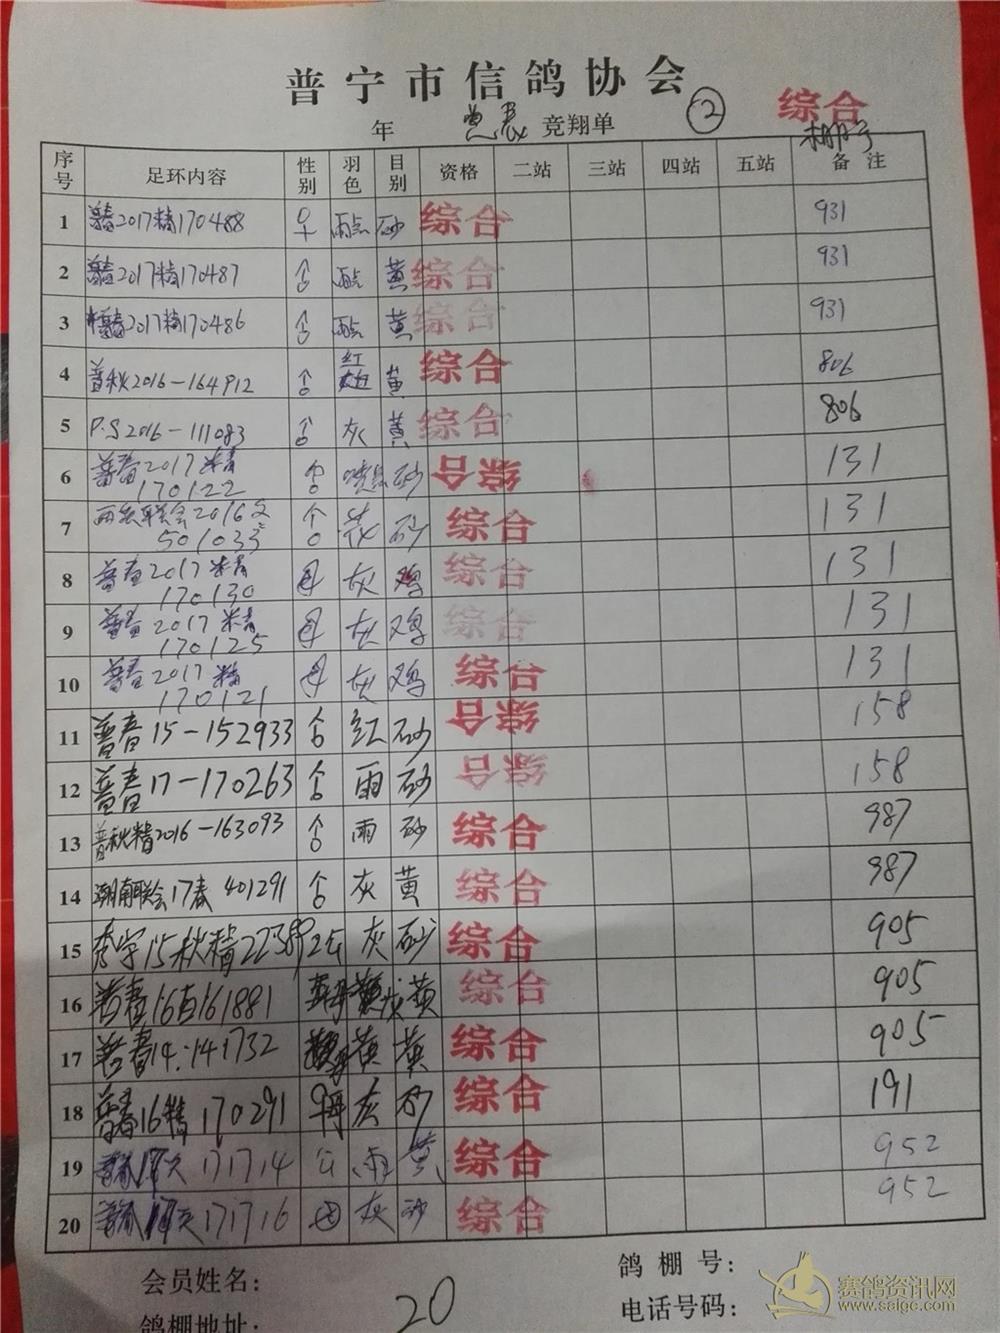 普宁市信鸽协会
年 竞翔单 ② 综合
棚号
序号 足环内容 性别 羽色 目别 资格 二站 三站 四站 五站 备注
1 普春2017精170488 ♀ 雨点 砂 综合 931
2 普春2017精170487 ♂ 雨点 黄 综合 931
3 普春2017精170486 ♂ 雨点 黄 综合 931
4 普秋2016-164912 ♂ 红 黄 综合 806
5 P.S2016-111083 ♂ 灰 黄 综合 806
6 普春2017精170122 砂 综合 131
7 联会2016 501033 花 砂 综合 131
8 普春2017精170130 母 灰 鸡 综合 131
9 普春2017精170125 母 灰 鸡 综合 131
10 普春2017精170121 母 灰 鸡 综合 131
11 普春15-152933 ♂ 红 砂 综合 158
12 普春17-170263 ♂ 雨 砂 综合 158
13 普秋精2016-163093 ♂ 雨 砂 综合 987
14 潮南联会17春401291 ♂ 灰 黄 综合 987
15 15秋精 灰 砂 综合 905
16 普春16 161881 母 黄 综合 905
17 普春14.141732 黄 综合 905
18 普春16精170291 母 灰 砂 综合 191
19 171714 公 雨 黄 综合 952
20 171716 母 灰 沙 综合 952
会员姓名： 鸽棚号：
鸽棚地址： 20 电话号码：
赛鸽资讯网
www.saigc.com